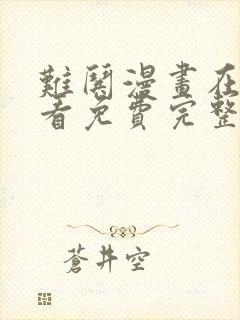 難鬩漫畫在
看免費完整
蒼井空